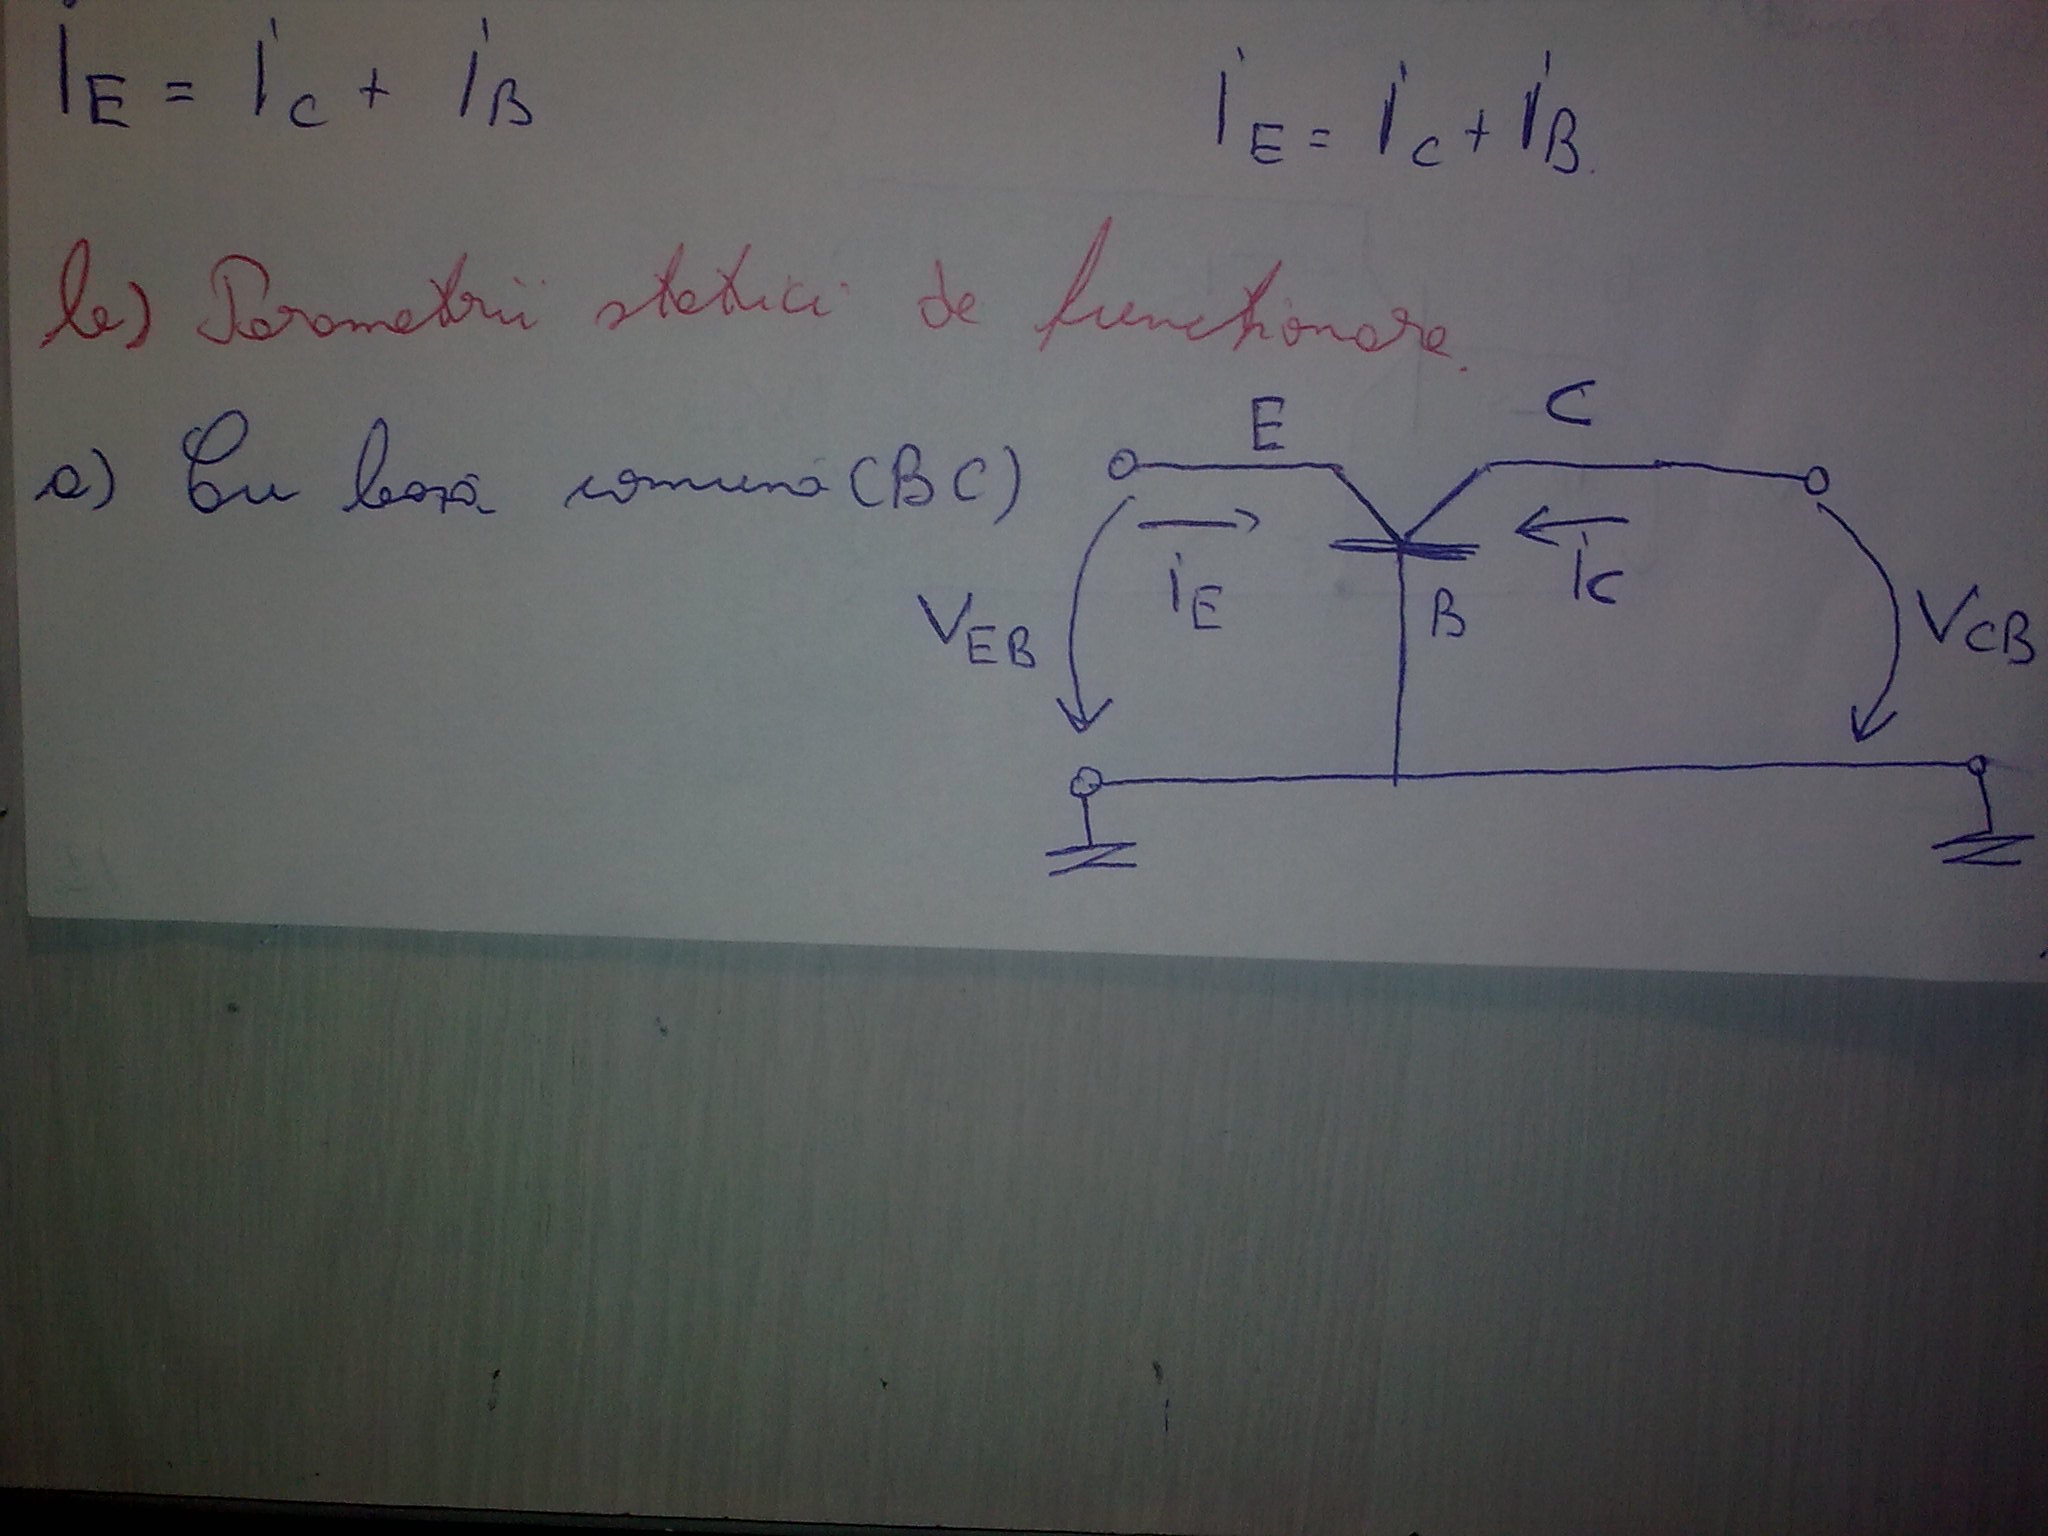 iE = iC + iB
iE = iC + iB.
b) Parametrii statici de funcționare.
a) Cu bază comună (BC)
E
C
iE
iC
VEB
B
VCB